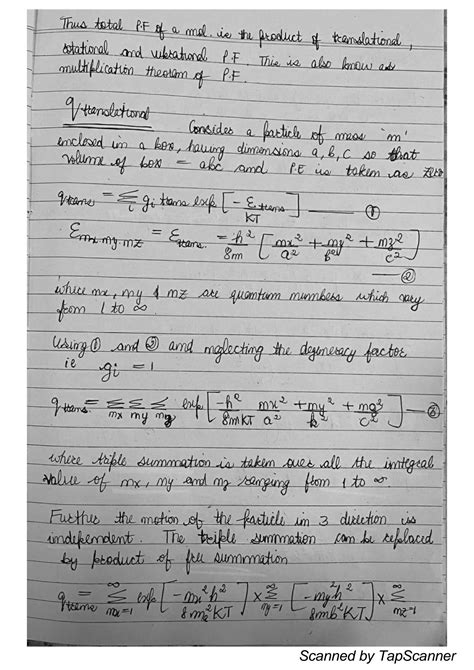 Thus total P.F of a mol. is the product of translational,
rotational and vibrational P.F. This is also know as
multiplication theorem of P.F.
q translational
Consider a particle of mass 'm'
enclosed in a box, having dimensions a, b, c so that
volume of box = abc and P.E is taken as zero
q trans = Σ i gi trans exp [ -ε trans / KT ] ——— ①
ε mx my mz = ε trans = h² / 8m [ mx² / a² + my² / b² + mz² / c² ] ——— ②
where mx, my & mz are quantum numbers which vary
from 1 to ∞
Using ① and ② and neglecting the degeneracy factor
ie gi = 1
q trans. = Σ mx Σ my Σ mz exp [ -h² / 8mKT mx² / a² + my² / b² + mz² / c² ] — ③
where triple summation is taken over all the integral
value of mx, my and mz ranging from 1 to ∞
Further the motion of the particle in 3 direction is
independent. The triple summation can be replaced
by product of summation
q trans = ∞ Σ mx=1 exp [ -mx² h² / 8ma² KT ] × ∞ Σ my=1 [ -my² h² / 8mb² KT ] × ∞ Σ mz=1
Scanned by TapScanner